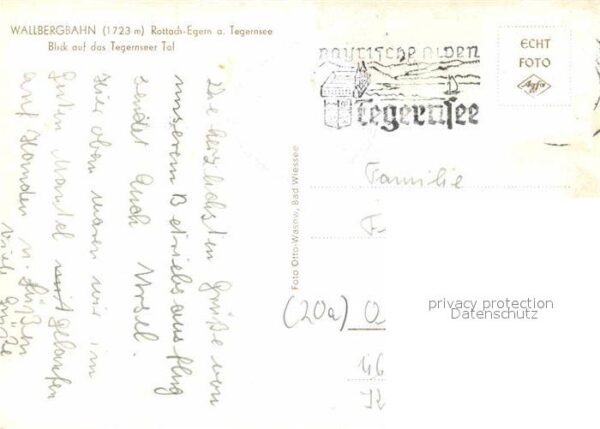 WALLBERGBAHN (1723 m) Rottach-Egern a. Tegernsee
Blick auf das Tegernseer Tal
Die herzlichsten Grüße von
unserem Betriebsausflug
sendet Euch Ursel.
Hier oben waren wir im
guten Mantel gelaufen
auf Händen u. Füßen
Viele Grüße
Foto Otto-Wasow, Bad Wiessee
BAYRISCHE ALPEN
Tegernsee
ECHT
FOTO
Agfa
Familie
F
(20a) O
privacy protection
Datenschutz